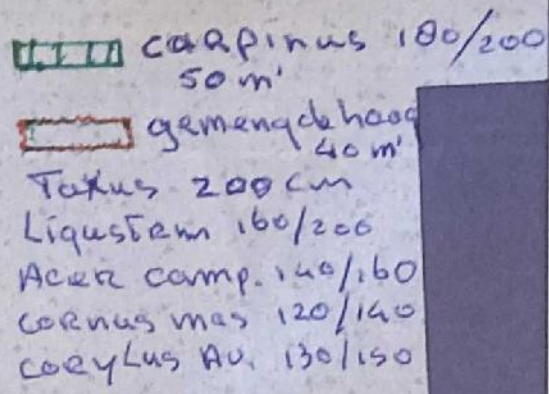 carpinus 180/200
50 m'
gemengde haag
40 m'
Taxus 200 cm
Ligustrum 160/200
Acer camp. 140/160
cornus mas 120/140
corylus Av. 130/150